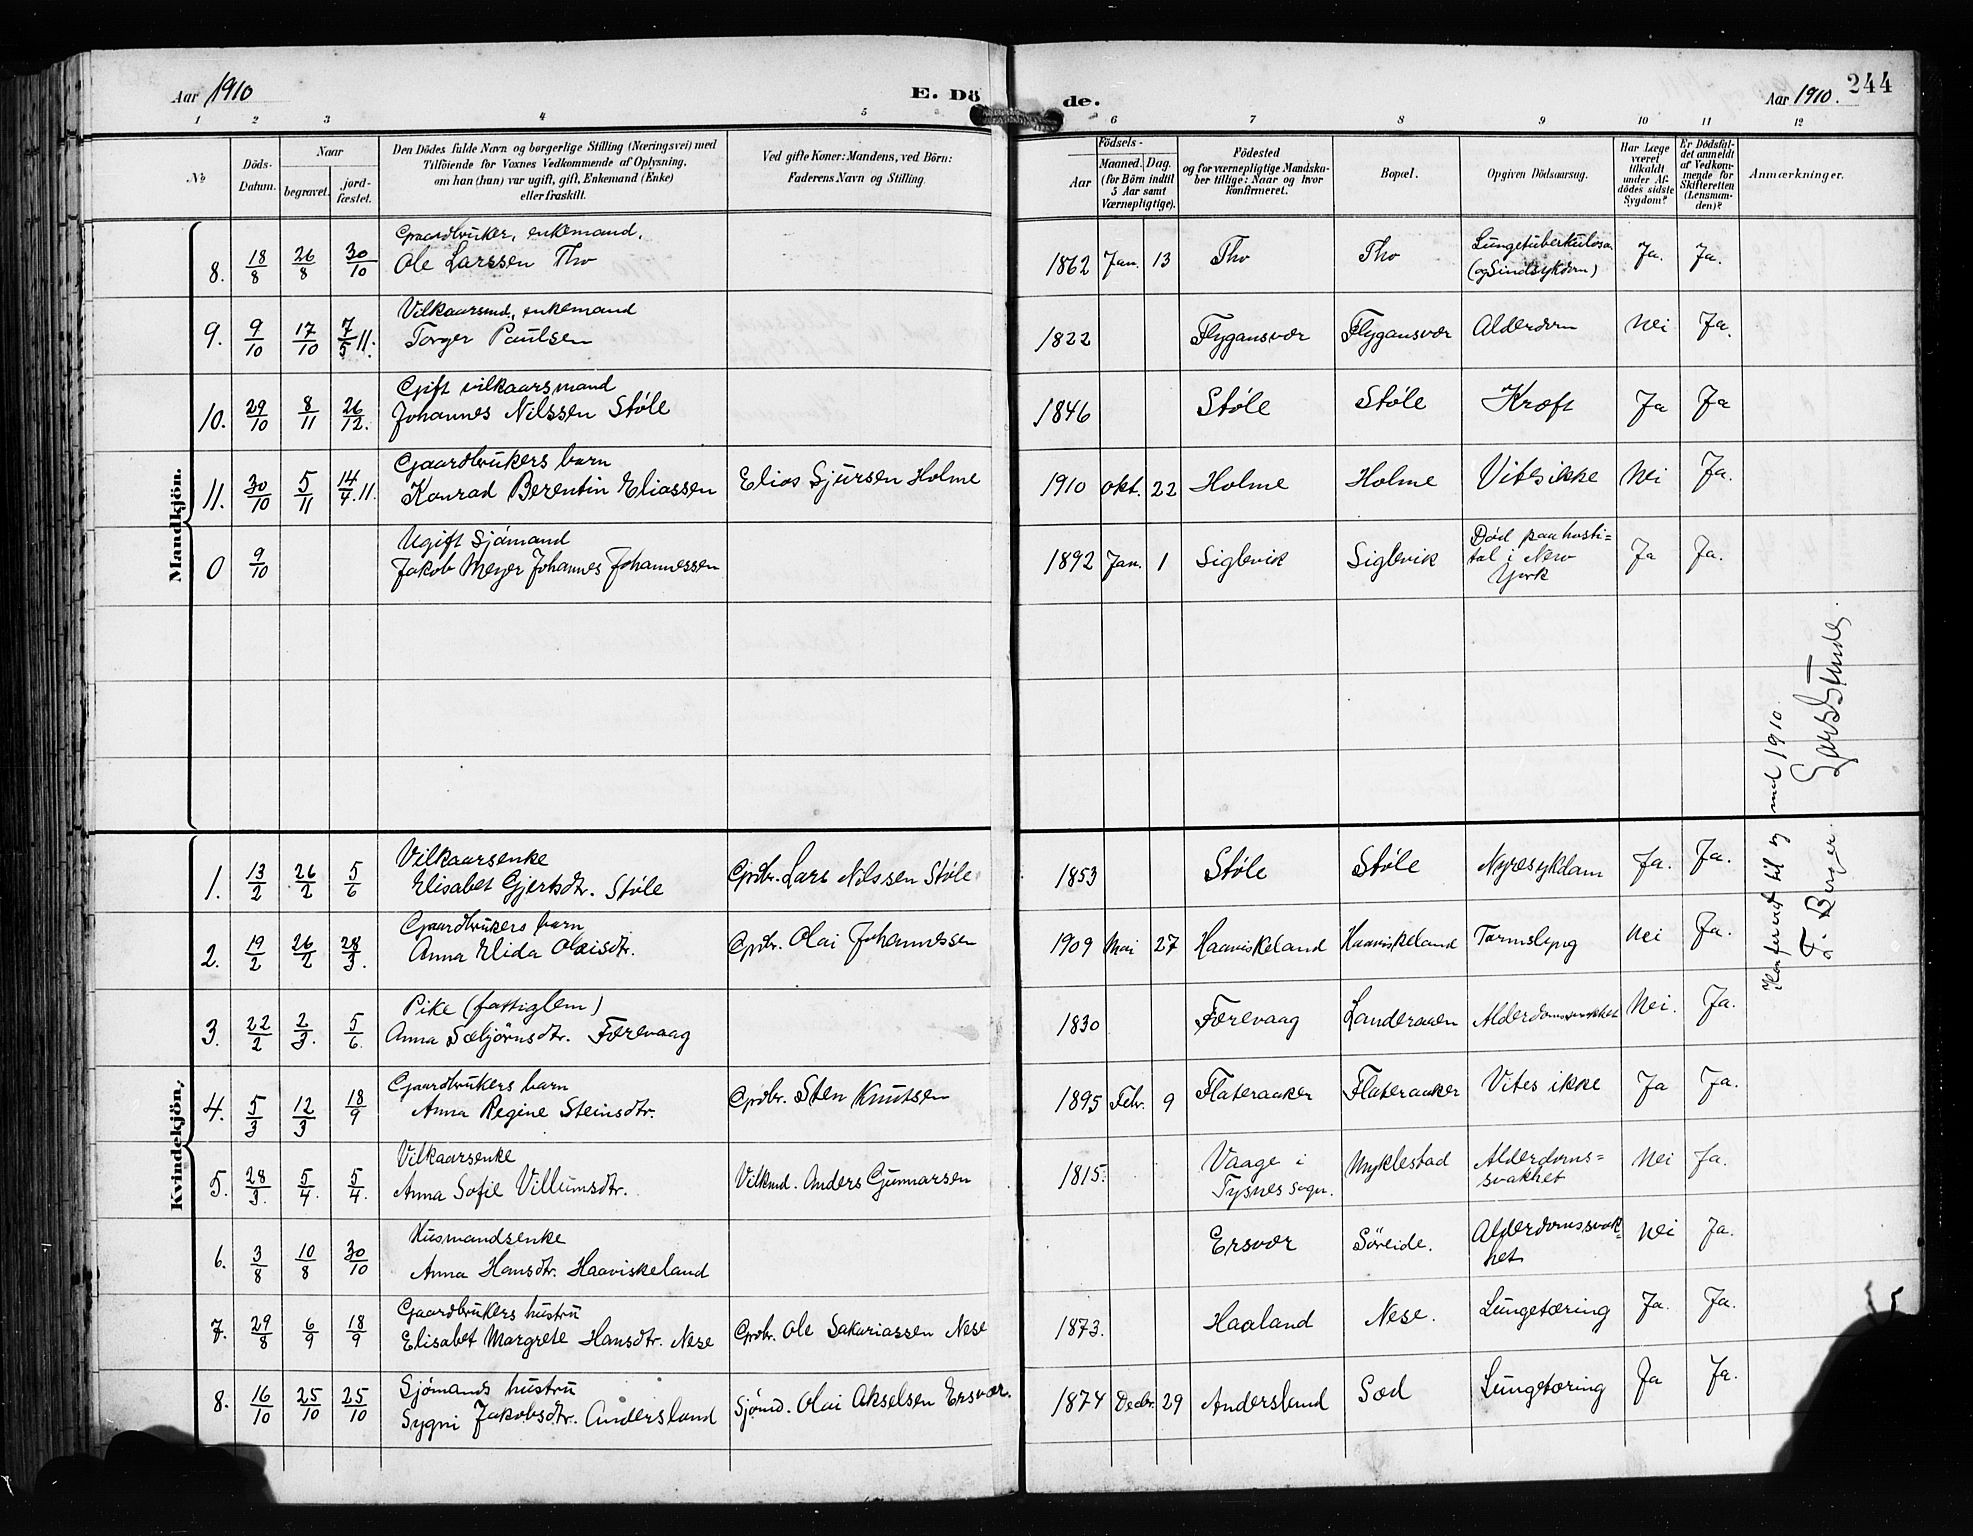 Aar 1910 E. Dö de. Aar 1910. 244
1 2 3 4 5 6 7 8 9 10 11 12
No
Döds-Datum.
Naar
begravet.
jord-fæstet.
Den Dödes fulde Navn og borgerlige Stilling (Næringsvei) med
Tilföiende for Voxnes Vedkommende af Oplysning,
om han (hun) var ugift, gift, Enkemand (Enke)
eller fraskilt.
Ved gifte Koner: Mandens, ved Börn:
Faderens Navn og Stilling.
Födsels-
Aar
Maaned. Dag.
(for Börn indtil
5 Aar samt
Værnepligtige).
Födested
og for værnepligtige Mandska-
ber tillige: Naar og hvor
konfirmeret.
Bopæl.
Opgiven Dödsaarsag.
Har Læge
været
tilkaldt
under Af-
dödes sidste
Sygdom?
Er Dödsfal-
det anmeldt
af Vedkom-
mende for
Skifteretten
(Lensman-
den)?
Anmærkninger.
Mandkjön.
Gaardbruker, enkemand,
8. 18/8 26/8 30/10 Ole Larssen Tho 1862 Jan. 13 Tho Tho Lungetuberkulose Ja. Ja.
(og Sindsykdom)
Vilkaarsmd, enkemand
9. 9/10 17/10 7/5 11. Torger Paulsen 1822 Flygansvær Flygansvær Alderdom Nei Ja.
Gift vilkaarsmand
10. 29/10 8/11 26/12. Johannes Nilssen Støle 1846 Støle Støle Kræft Ja Ja
Gaardbrukers barn
11. 30/10 5/11 14/4 11. Konrad Berentin Eliassen Elias Sjursen Holme 1910 Okt. 22 Holme Holme Vites ikke Nei Ja.
Ugift Sjømand
0 9/10 Jakob Meyer Johannes Johannessen 1892 Jan. 1 Siglevik Siglevik Død paa hosti=
tal i New
York Ja Ja.
Kvindekjön.
Vilkaarsenke
1. 13/2 26/2 5/6 Elisabet Gjertsdtr. Støle Grdbr. Lars Nilssen Støle 1853 Støle Støle Nyresykdom Ja. Ja.
Gaardbrukers barn
2. 19/2 26/2 28/3. Anna Elida Olaisdtr. Grdbr. Olai Johannessen 1909 Mai 27 Haaviskeland Haaviskeland Tarmslyng Nei Ja.
Pike (fattiglem)
3. 22/2 2/3. 5/6. Anna Sæbjørnsdtr. Færevaag 1830 Færevaag Landeraaen Alderdomssvakhet Nei. Ja.
Gaardbrukers barn
4. 5/3 12/3 18/9 Anna Regine Steinsdtr. Grdbr. Sten Knutsen 1895 Febr. 9 Flateraaker Flateraaker Vites ikke Ja Ja.
Vilkaarsenke
5. 28/3. 5/4. 5/4. Anna Sofie Villumsdtr. Vilkmd. Anders Gunnarsen 1815. Vaage i
Tysnes sogn. Myklestad Alderdoms=
svakhet Nei Ja.
Husmandsenke
6. 3/8 10/8 30/10 Anna Hansdtr. Haaviskeland Ersvær Søreide. Alderdomssvak=
het Nei Ja.
Gaardbrukers hustru
7. 29/8 6/9 18/9 Elisabet Margrete Hansdtr. Nese Grdbr. Ole Sakariassen Nese 1873. Haaland Nese. Lungetæring Ja. Ja.
Sjømands hustru
8. 16/10 25/10 25/10 Sygni Jakobsdtr. Andersland Sjømd. Olai Akselsen Ersvær. 1874 Decbr. 29 Andersland Sæd Lungetæring Ja Ja.
Konferert til og med 1910.
F. Berger. Lars Tunde.